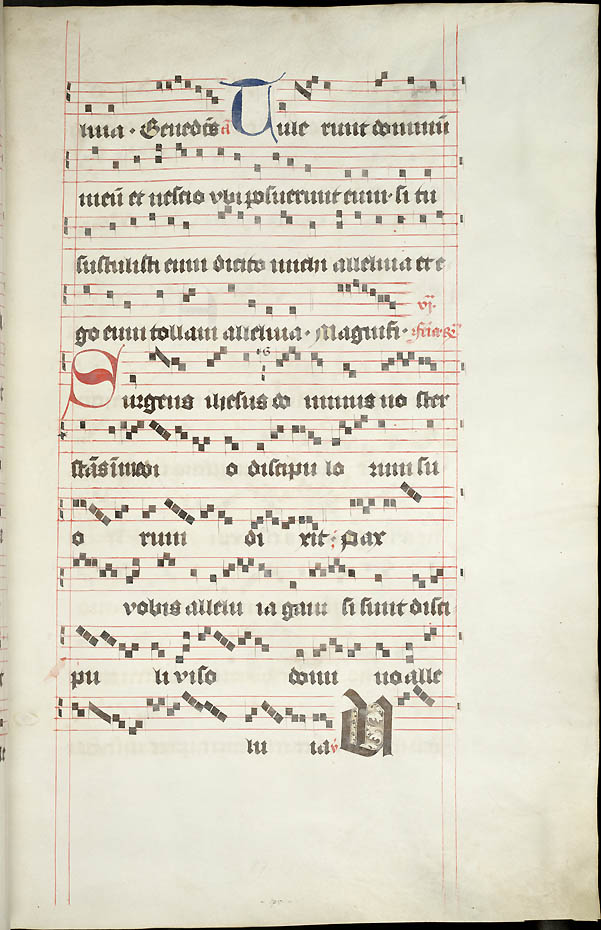 luia · Benedictus a Tule runt dominum
meū et nescio vbi posuerunt eum · si tu
sustulisti eum dicito michi alleluia et e
go eum tollam alleluia · Magnifi ·
Surgens ihesus do minus no ster
stās ī medi o discipu lo rum su
o rum di xit : Pax
vobis allelu ia gaui si sunt disci
pu li viso domi no alle
lu ia v̄ U